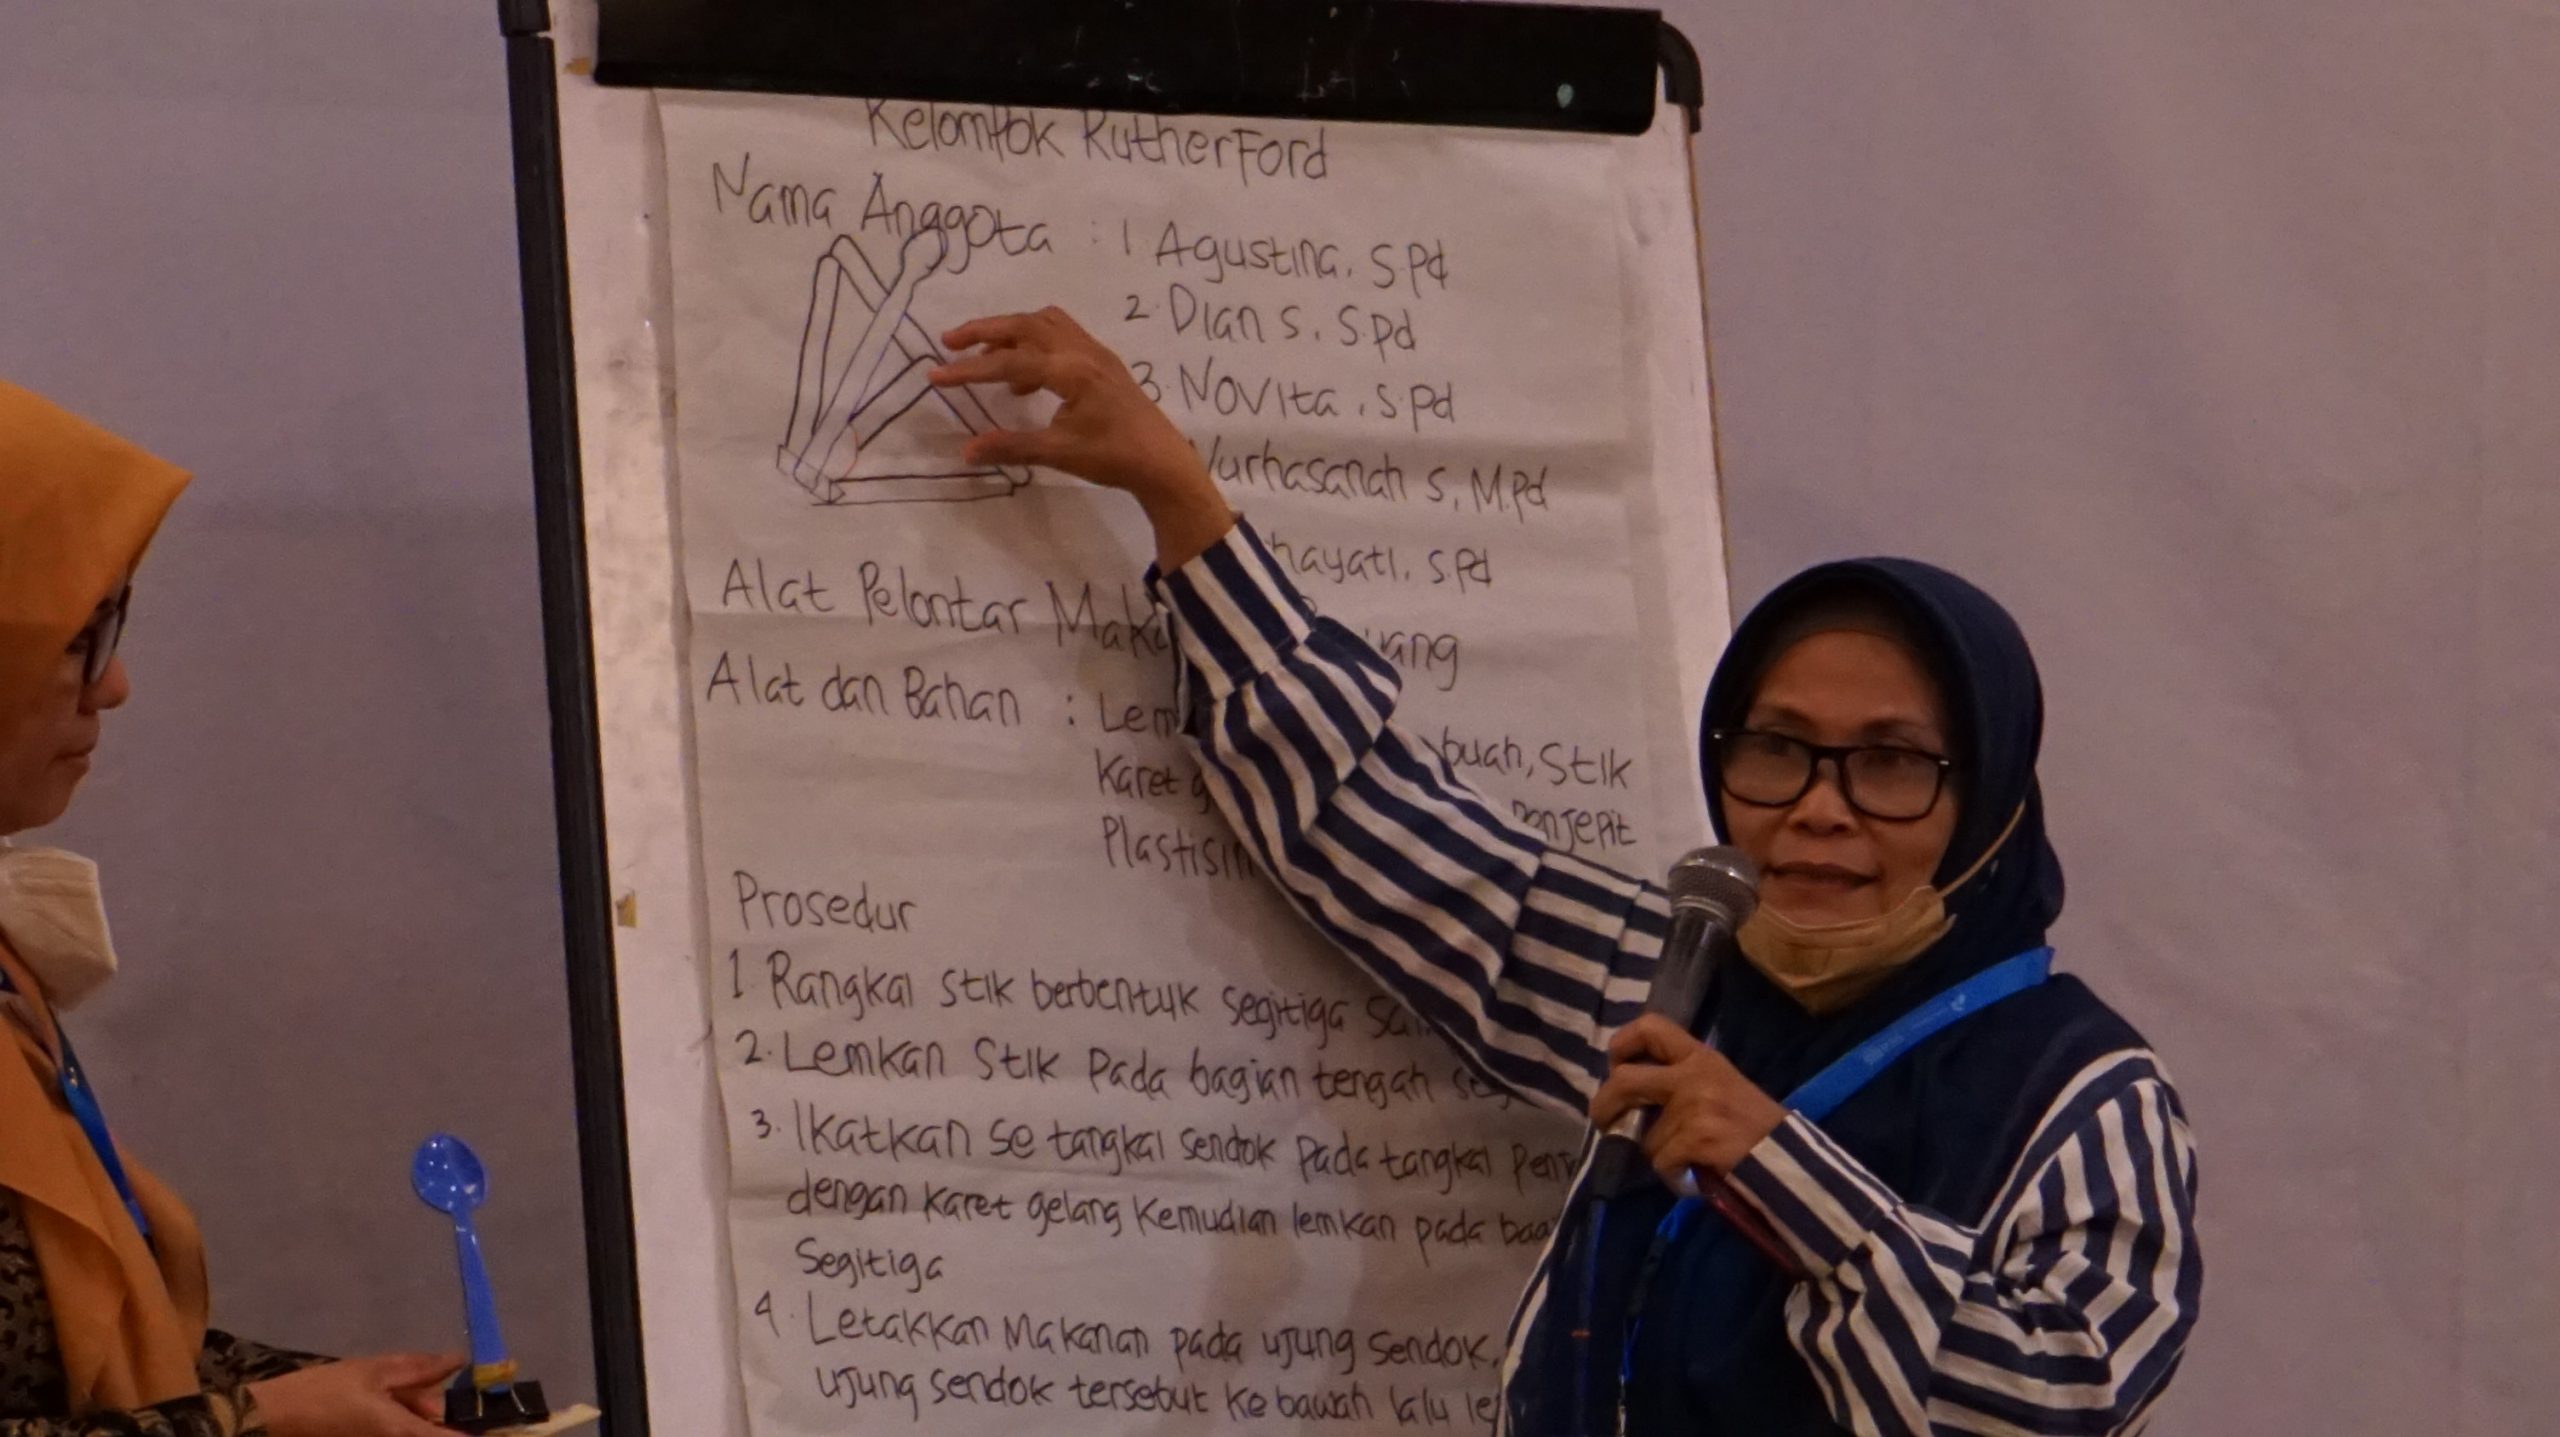 Kelompok Rutherford
Nama Anggota : 1 Agustina, S.Pd
2. Dian S, S.Pd
3. Novita, S.Pd
S, M.Pd
S.Pd
Alat Pelontar
Alat dan Bahan :
buah, Stik
Karet
Prosedur
1. Rangkai Stik berbentuk segitiga
2. Lemkan Stik pada bagian tengah
3. Ikatkan se tangkai sendok pada tangkai
dengan karet gelang kemudian lemkan pada
Segitiga
4. Letakkan Makanan pada ujung sendok,
ujung sendok tersebut ke bawah lalu